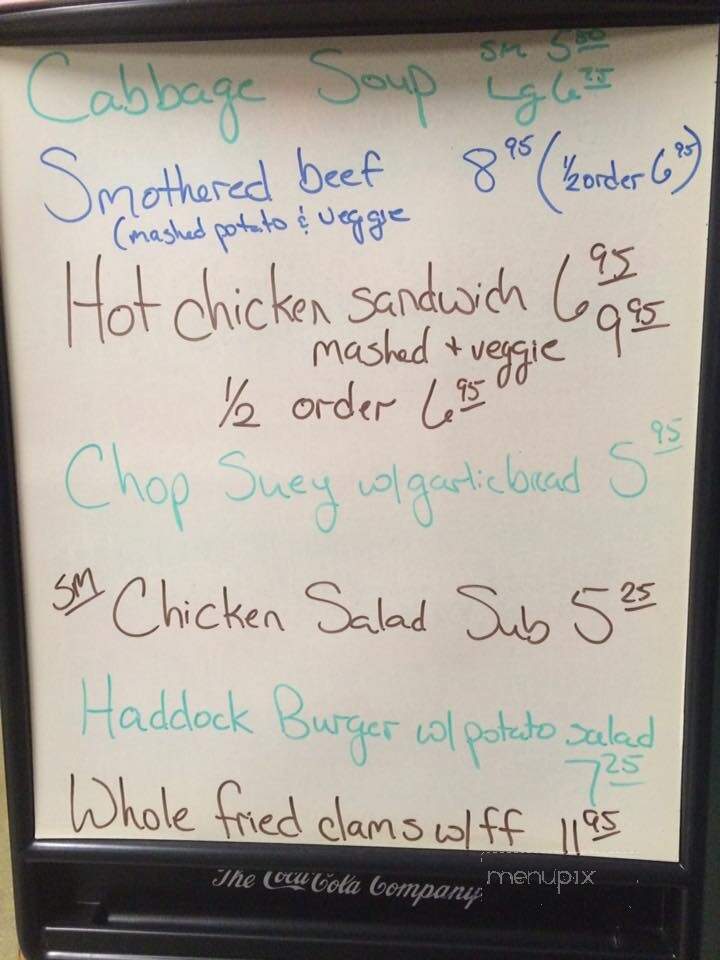 Cabbage Soup sm 5 50
Lg 6 25
Smothered beef 8 95 (1/2 order 6 95)
(mashed potato & veggie
Hot chicken sandwich 6 95
mashed + veggie 9 95
1/2 order 6 95
Chop Suey w/garlic bread 5 95
SM Chicken Salad Sub 5 25
Haddock Burger w/potato salad
7 25
Whole fried clams w/ff 11 95
The Coca-Cola Company
menupix